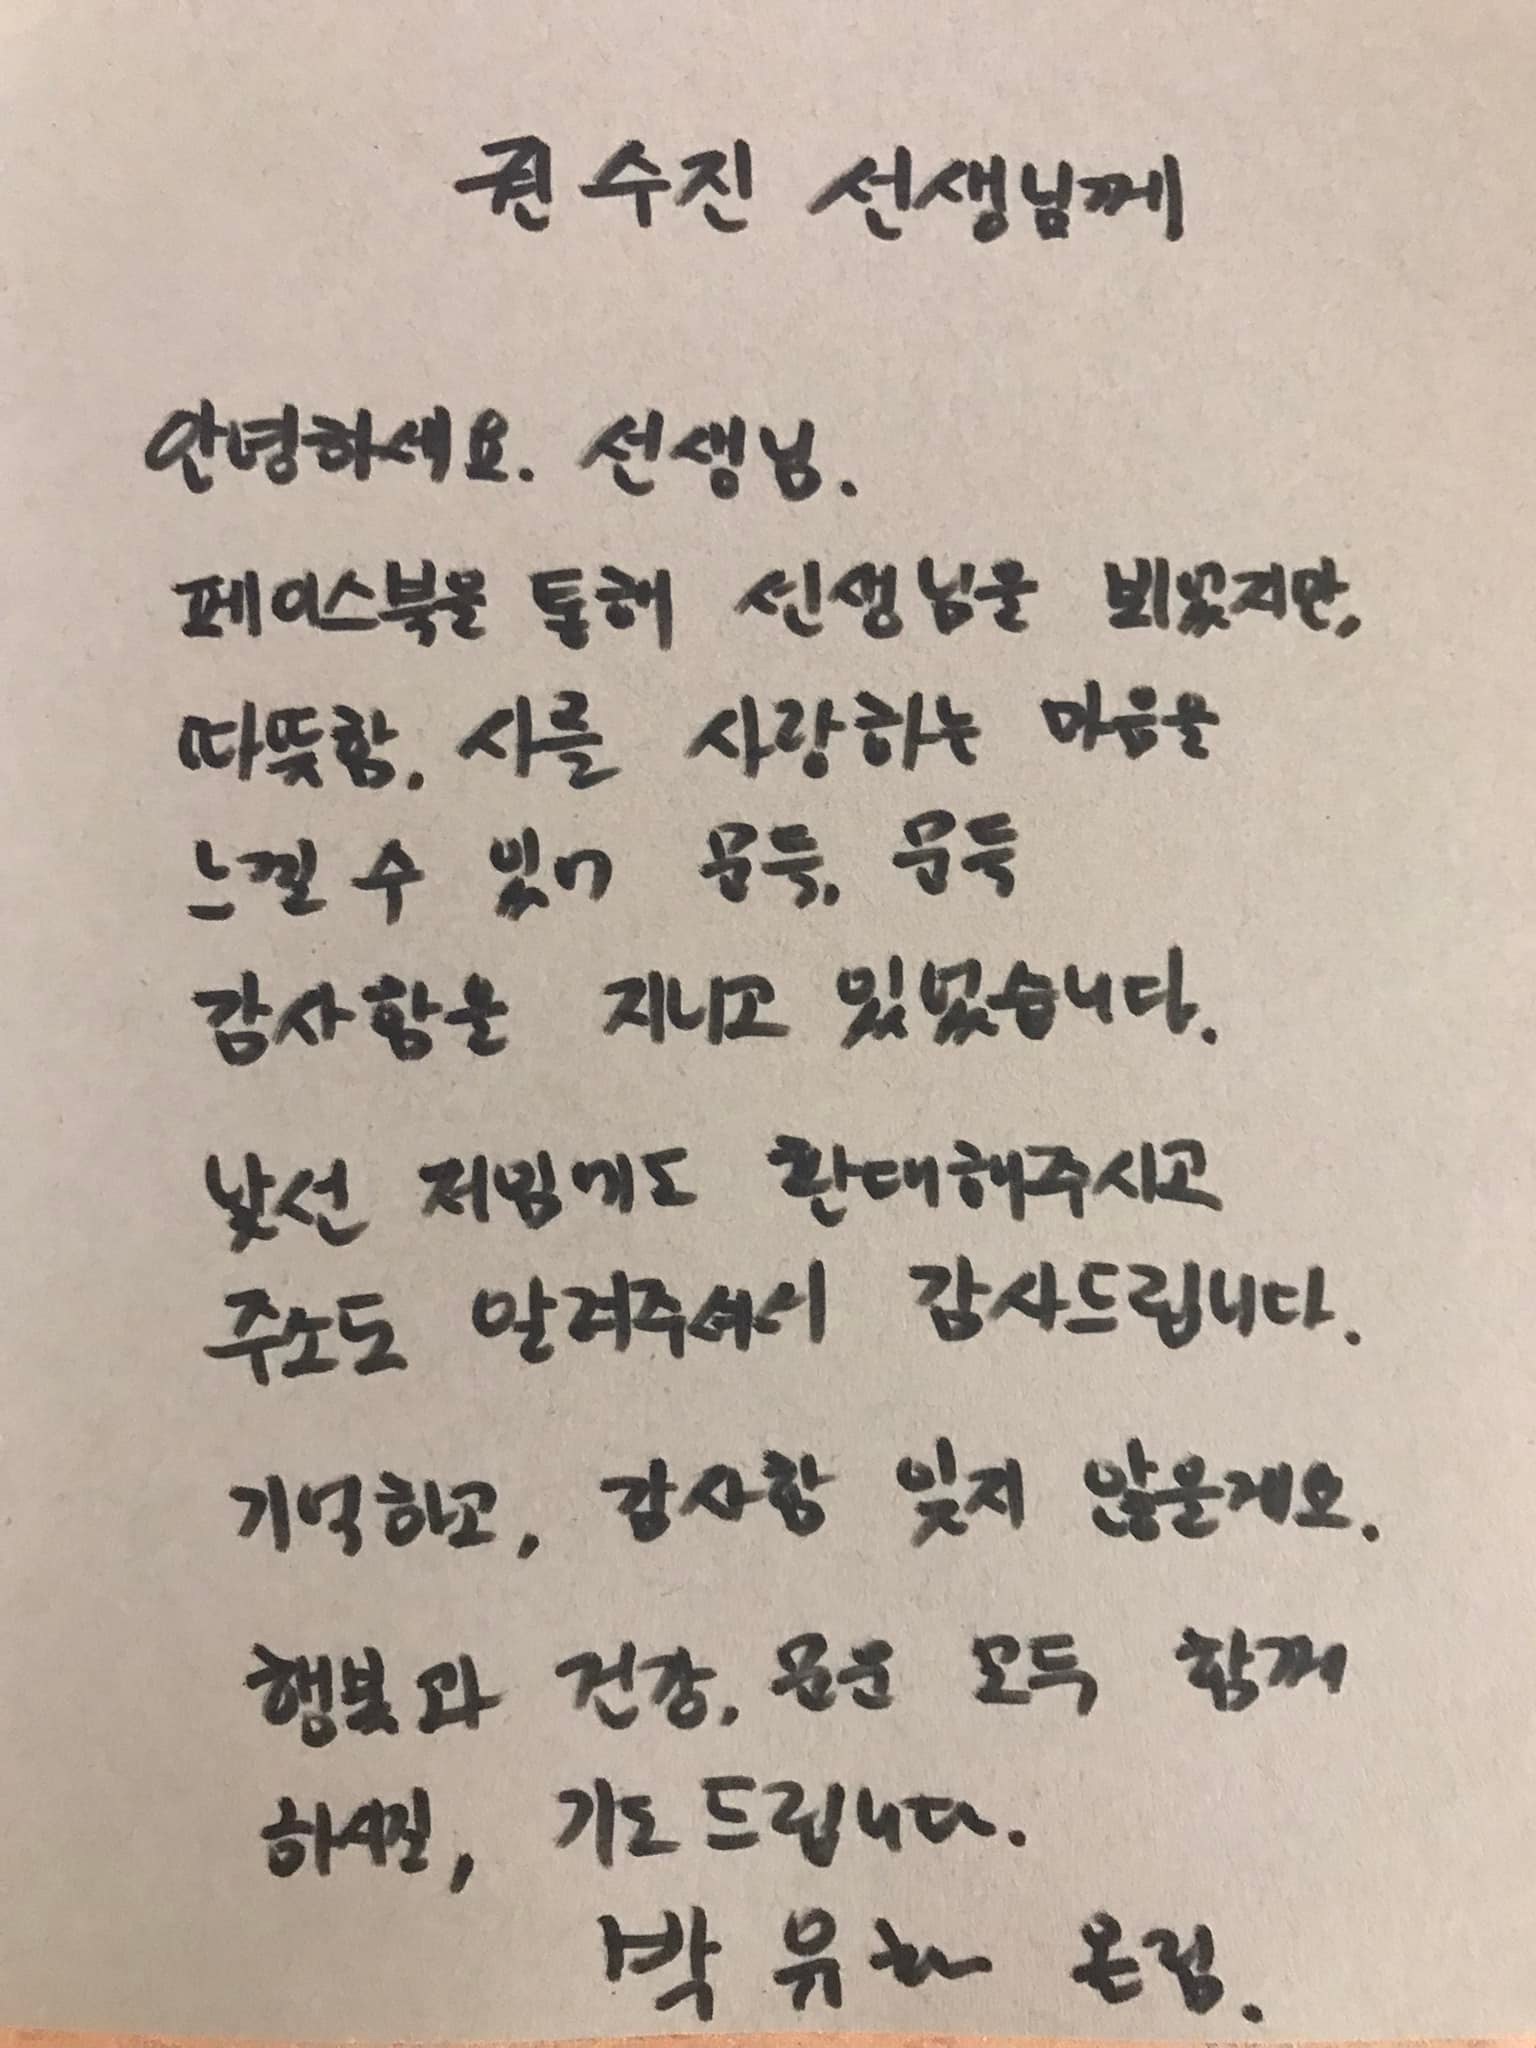 권수진 선생님께
안녕하세요. 선생님.
페이스북을 통해 선생님을 뵈었지만,
따뜻함, 시를 사랑하는 마음을
느낄 수 있어 문득, 문득
감사함을 지니고 있었습니다.
낯선 저임에도 환대해주시고
주소도 알려주셔서 감사드립니다.
기억하고, 감사함 잊지 않을게요.
행복과 건강, 문운 모두 함께
하시길, 기도드립니다.
박유하 올림.